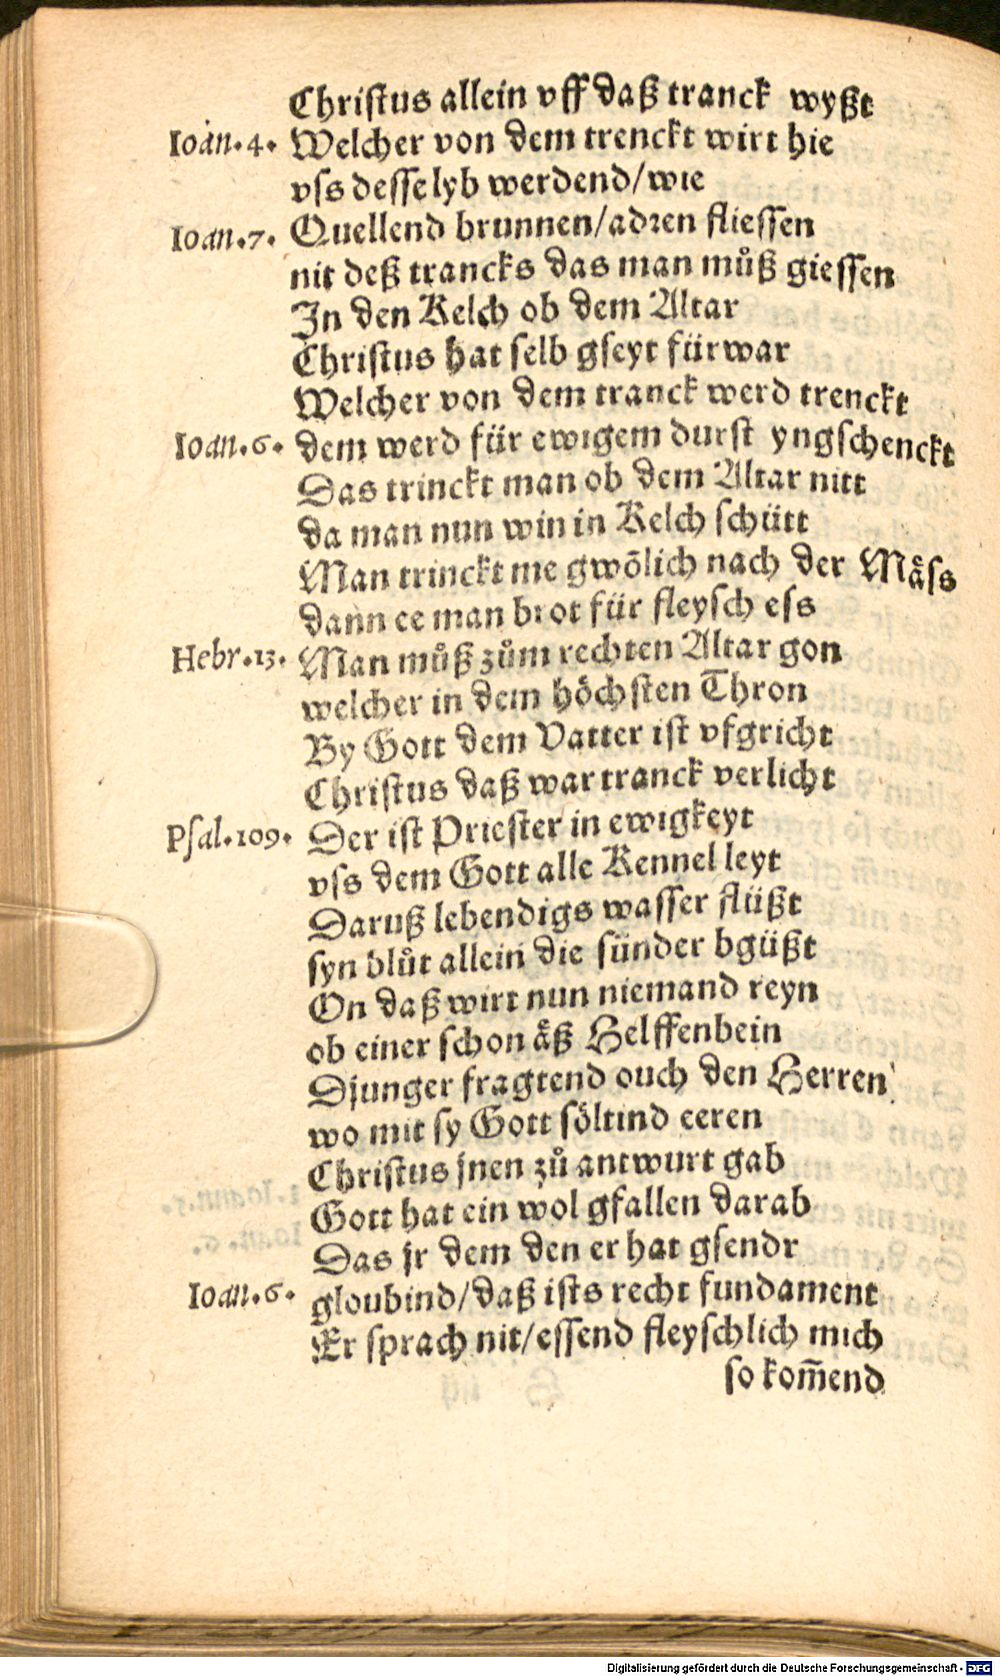 Christus allein vff daß tranck wyßt
Ioan.4. Welcher von dem trenckt wirt hie
vss desse lyb werdend/wie
Ioan.7. Quellend brunnen/adren fliessen
nit deß trancks das man můß giessen
In den Kelch ob dem Altar
Christus hat selb gseyt fürwar
Welcher von dem tranck werd trenckt
Ioan.6. dem werd für ewigem durst yngschenckt
Das trinckt man ob dem Altar nitt
da man nun win in Kelch schütt
Man trinckt me gwõlich nach der Mäss
dann ee man brot für fleysch ess
Hebr.13. Man můß zům rechten Altar gon
welcher in dem höchsten Thron
By Gott dem Vatter ist vfgricht
Christus daß war tranck verlicht
Psal.109. Der ist Priester in ewigkeyt
vss dem Gott alle Kennel leyt
Daruß lebendigs wasser flüßt
syn blůt allein die sünder bgüßt
On daß wirt nun niemand reyn
ob einer schon äß Helffenbein
Djunger fragtend ouch den Herren
wo mit sy Gott söltind eeren
Christus jnen zů antwurt gab
Gott hat ein wol gfallen darab
Das jr dem den er hat gsendt
Ioan.6. gloubind/daß ists recht fundament
Er sprach nit/essend fleyschlich mich
so kom̃end
Digitalisierung gefördert durch die Deutsche Forschungsgemeinschaft - DFG